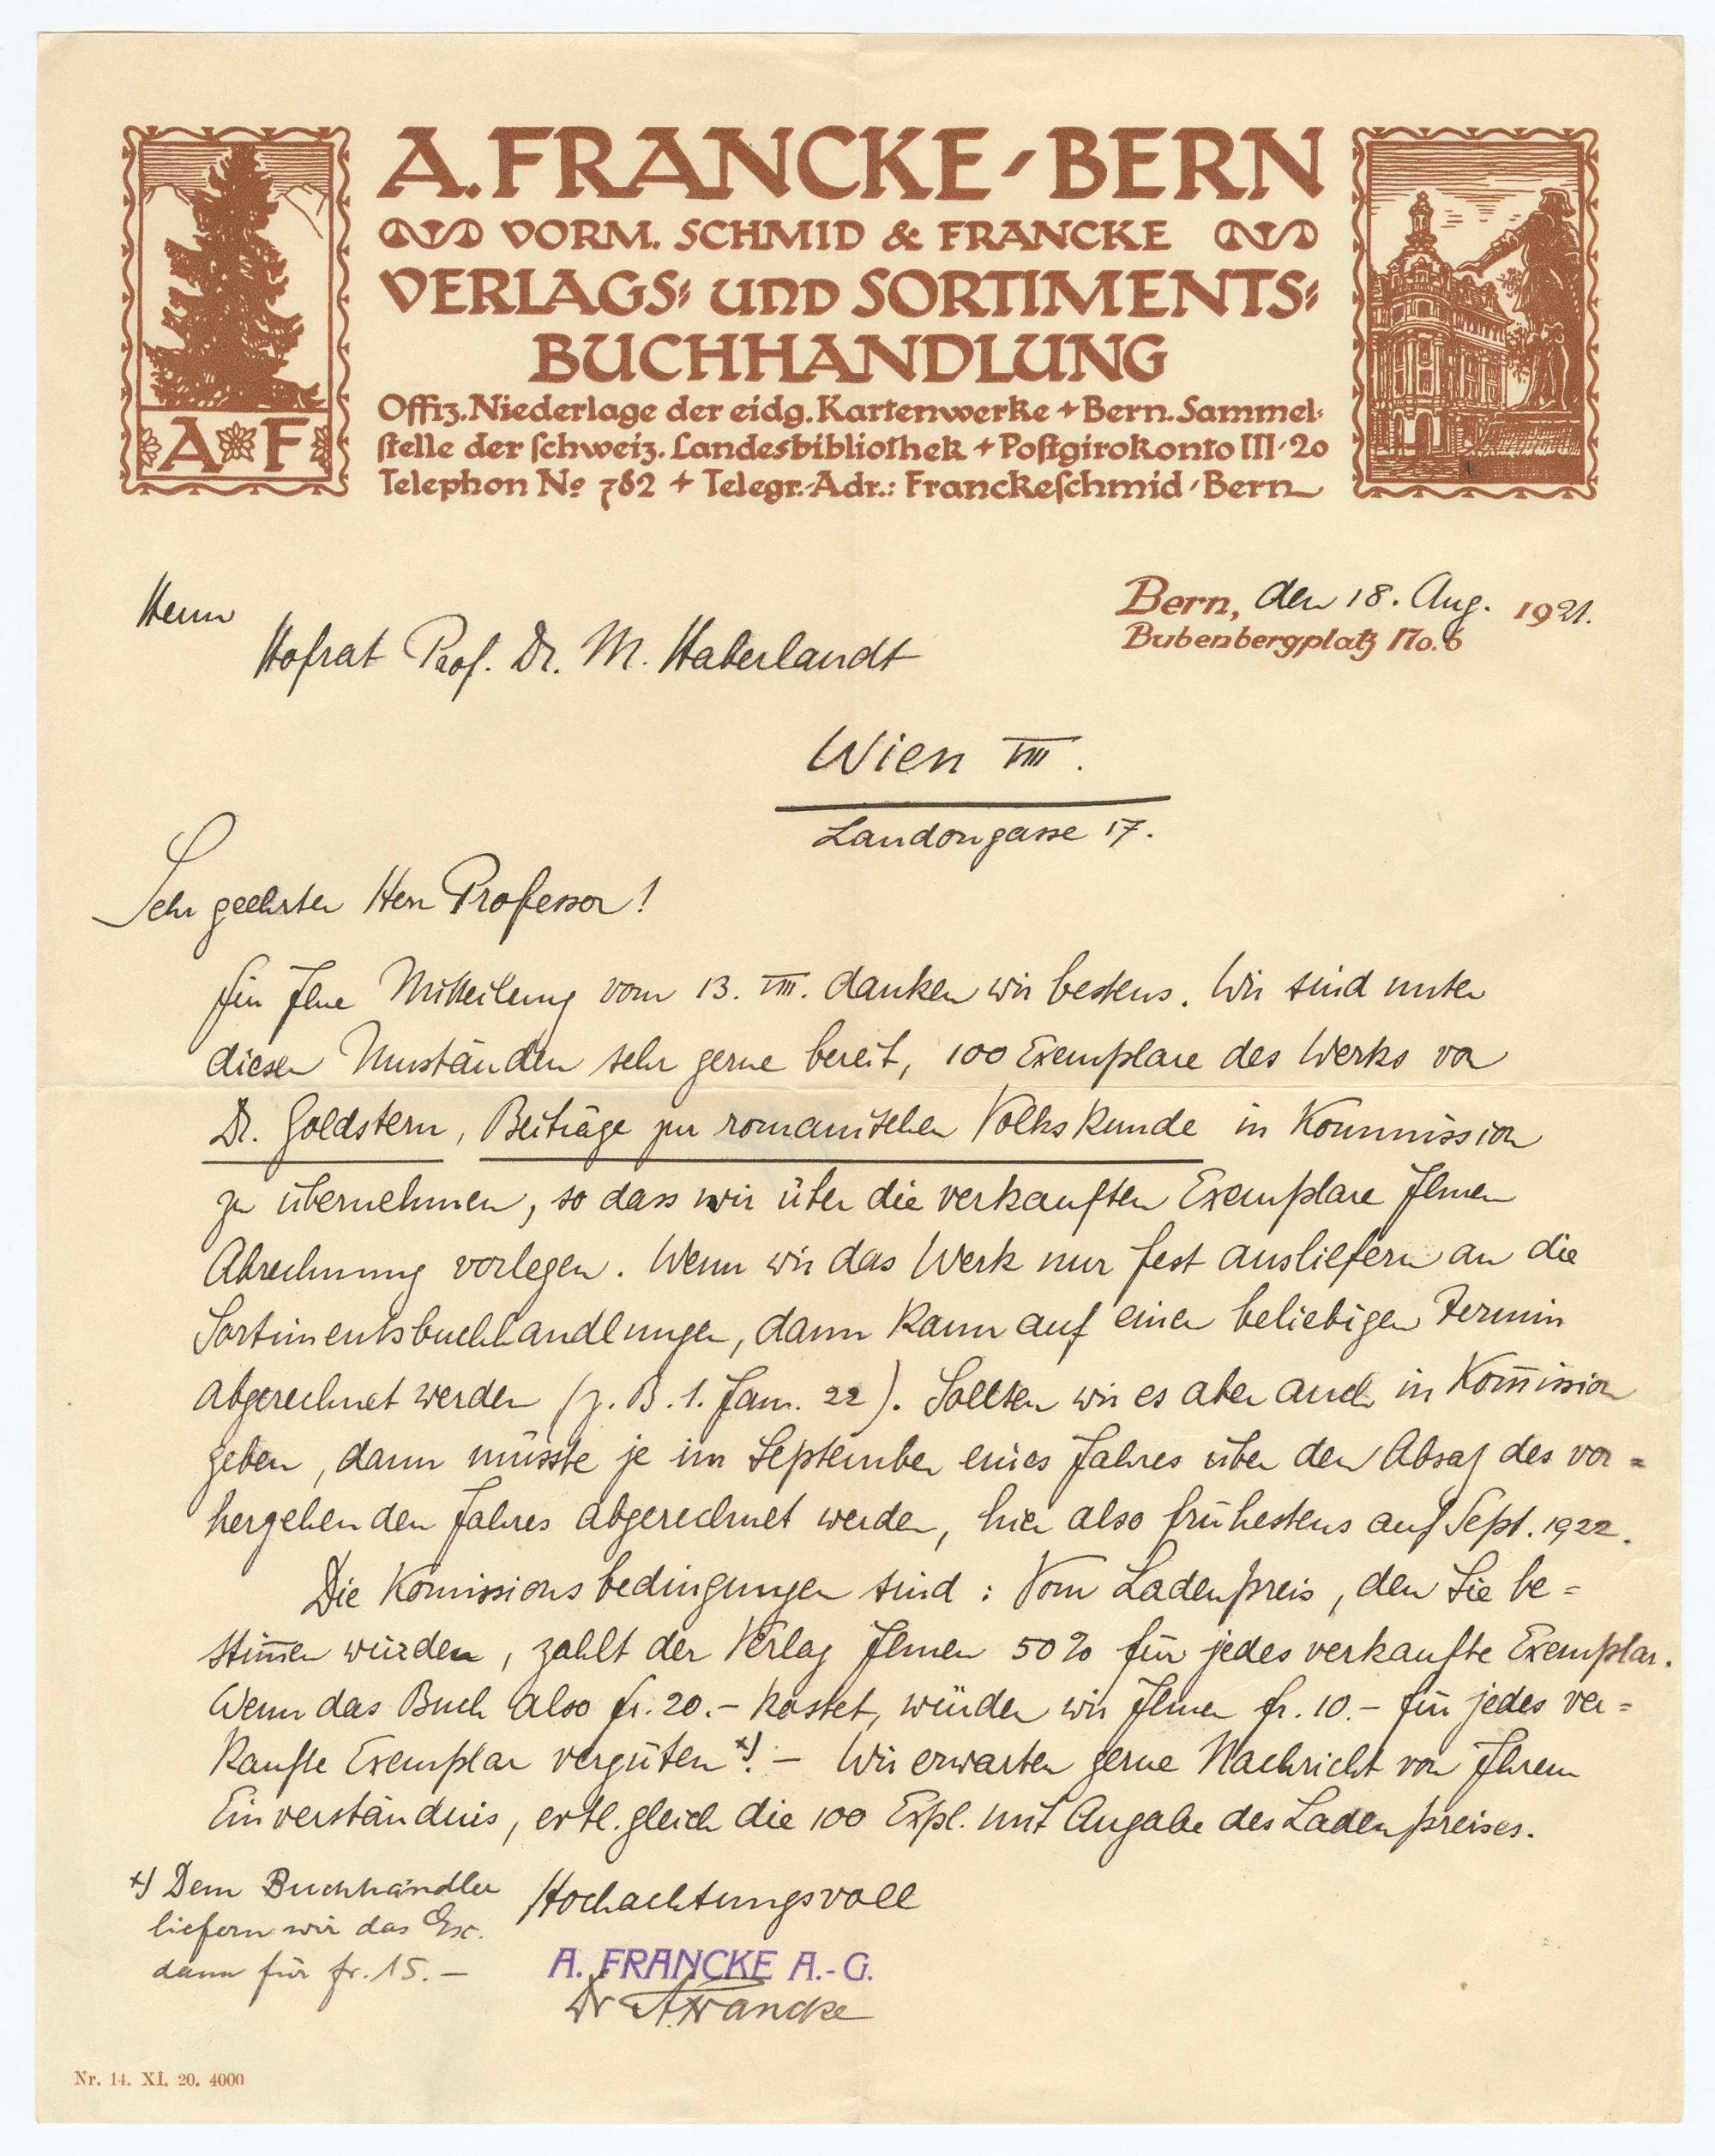 A. FRANCKE-BERN
VORM. SCHMID & FRANCKE
VERLAGS- UND SORTIMENTS-
BUCHHANDLUNG
Offiz. Niederlage der eidg. Kartenwerke + Bern. Sammel-
stelle der schweiz. Landesbibliothek + Postgirokonto III-20
Telephon No 782 + Telegr.-Adr.: Franckeschmid-Bern
A F
Bern, den 18. Aug. 1921.
Bubenbergplatz No. 6
Herrn
Hofrat Prof. Dr. M. Haberlandt
Wien VIII.
Laudongasse 17.
Sehr geehrter Herr Professor!
Für Ihre Mitteilung vom 13. VIII. danken wir bestens. Wir sind unter
diesen Umständen sehr gerne bereit, 100 Exemplare des Werks von
Dr. Goldstern, Beiträge zur romanischen Volkskunde in Kommission
zu übernehmen, so dass wir über die verkauften Exemplare Ihnen
Abrechnung vorlegen. Wenn wir das Werk nur fest ausliefern an die
Sortimentsbuchhandlungen, dann kann auf einen beliebigen Termin
abgerechnet werden (z. B. 1. Jan. 22). Sollten wir es aber auch in Kom̅ission
geben, dann müsste je im September eines Jahres über den Absatz des vor=
hergehenden Jahres abgerechnet werden, hier also frühestens auf Sept. 1922.
Die Komissionsbedingungen sind: Vom Ladenpreis, den Sie be=
stim̅en würden, zahlt der Verlag Ihnen 50% für jedes verkaufte Exemplar.
Wenn das Buch also fr. 20.- kostet, würden wir Ihnen fr. 10.- für jedes ver=
kaufte Exemplar vergüten x). – Wir erwarten gerne Nachricht von Ihrem
Einverständnis, evtl. gleich die 100 Expl. mit Angabe des Ladenpreises.
x) Dem Buchhändler
liefern wir das Ex.
dann für fr. 15.–
Hochachtungsvoll
A. FRANCKE A.-G.
Dr A. Francke
Nr. 14. XI. 20. 4000